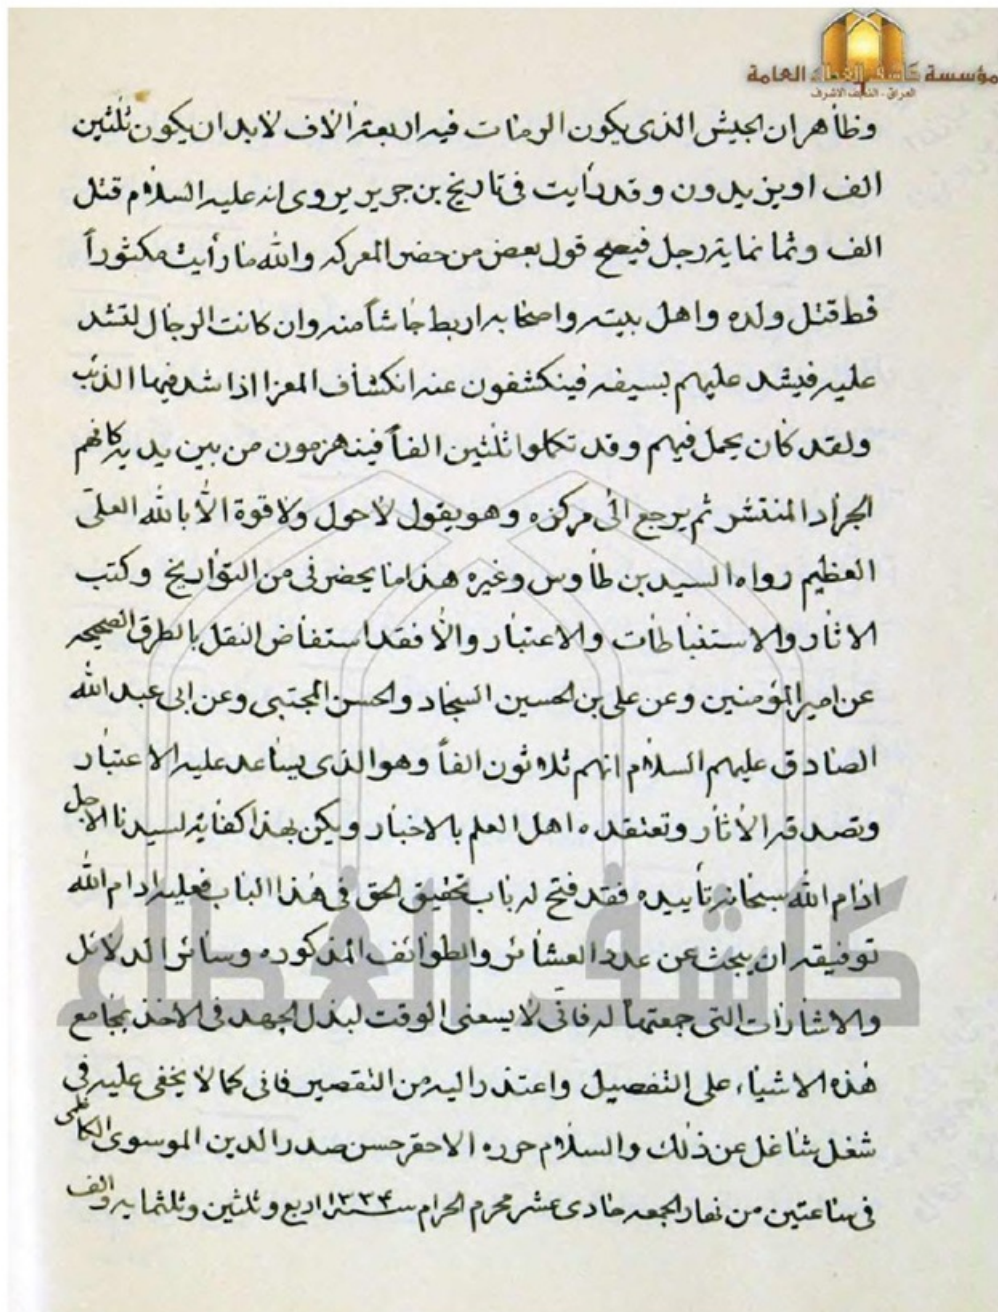 مؤسسة كاشف الغطاء العامة
العراق - النجف الاشرف
وظاهر ان الجيش الذى يكون الرمات فيه اربعة الاف لابد ان يكون ثلثين
الف اويزيدون وقد رأيت فى تاريخ بن جرير يروى انه عليه السلام قتل
الف وثمانمايه رجل فيصح قول بعض من حضر المعركه والله ما رأيت مكثوراً
قط قتل ولده واهل بيته واصحابه اربط جاشاً منه وان كانت الرجال لتشد
عليه فيشد عليهم بسيفه فينكشفون عنه انكشاف المعزا اذا شد فيها الذئب
ولقد كان يحمل فيهم وقد تكملوا ثلثين الفاً فينهزمون من بين يديه كانهم
الجراد المنتشر ثم يرجع الى مركزه وهو يقول لاحول ولاقوة الا بالله العلى
العظيم رواه السيد بن طاوس وغيره هذا ما يحضرنى من التواريخ وكتب
الاثار والاستنباطات والاعتبار والا فقد استفاض النقل بالطرق الصحيحه
عن امير المؤمنين وعن على بن الحسين السجاد والحسن المجتبى وعن ابى عبد الله
الصادق عليهم السلام انهم ثلاثون الفاً وهو الذى يساعد عليه الاعتبار
وتصدقه الاثار وتعتقده اهل العلم بالاخبار ويكن بهذا كفايه لسيدنا الاجل
ادام الله سبحانه تأييده فقد فتح له باب تحقيق الحق فى هذا الباب فعليه ادام الله
توفيقه ان يبحث عن عدد العشائر والطوائف المذكوره وسائر الدلائل
والاشارات التى جمعتها له فانى لا يسعنى الوقت لبذل الجهد فى الاخذ بمجامع
هذه الاشياء على التفصيل واعتذر اليه من التقصير فانى كما لا يخفى عليه فى
شغل شاغل عن ذلك والسلام حرره الاحقر حسن صدر الدين الموسوى الكاظمى
فى ساعتين من نهار الجمعه حادى عشر محرم الحرام سنة ١٣٣٤ اربع وثلثين وثلثمايه والف
كاشف الغطاء